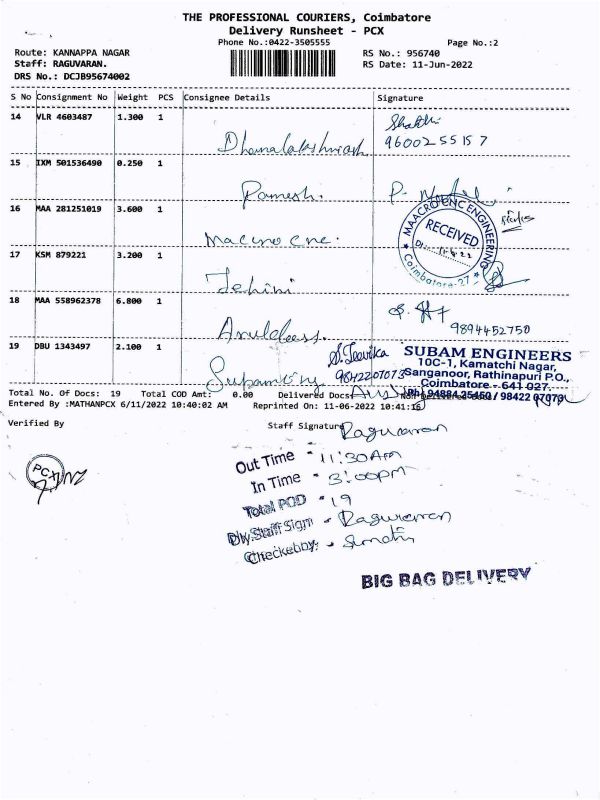 THE PROFESSIONAL COURIERS, Coimbatore
Delivery Runsheet - PCX
Phone No.:0422-3505555 Page No.:2
Route: KANNAPPA NAGAR RS No.: 956740
Staff: RAGUVARAN. RS Date: 11-Jun-2022
DRS No.: DCJB95674002
S No Consignment No Weight PCS Consignee Details Signature
14 VLR 4603487 1.300 1
Shakthi
Dhanalakshmiash 9600255157
15 IXM 501536490 0.250 1
Ramesh. P.
16 MAA 281251019 3.600 1
MAACRO CNC ENGINEERING
RECEIVED
Coimbatore-27
Macro cnc.
17 KSM 879221 3.200 1
18 MAA 558962378 6.800 1
9894452750
19 DBU 1343497 2.100 1
S. Jeevika SUBAM ENGINEERS
9842207073 10C-1, Kamatchi Nagar,
Sanganoor, Rathinapuri P.O.,
Coimbatore - 641 027.
Ph: 94884 25450 / 98422 07073
Total No. Of Docs: 19 Total COD Amt: 0.00 Delivered Docs
Entered By :MATHANPCX 6/11/2022 10:40:02 AM Reprinted On: 11-06-2022 10:41:16
Verified By Staff Signature Raguvaran
PCX
Out Time - 11:30AM
In Time - 3:00PM
Total POD - 19
Dly.Staff Sign - Raguvaran
Checked by - Sumathi
BIG BAG DELIVERY